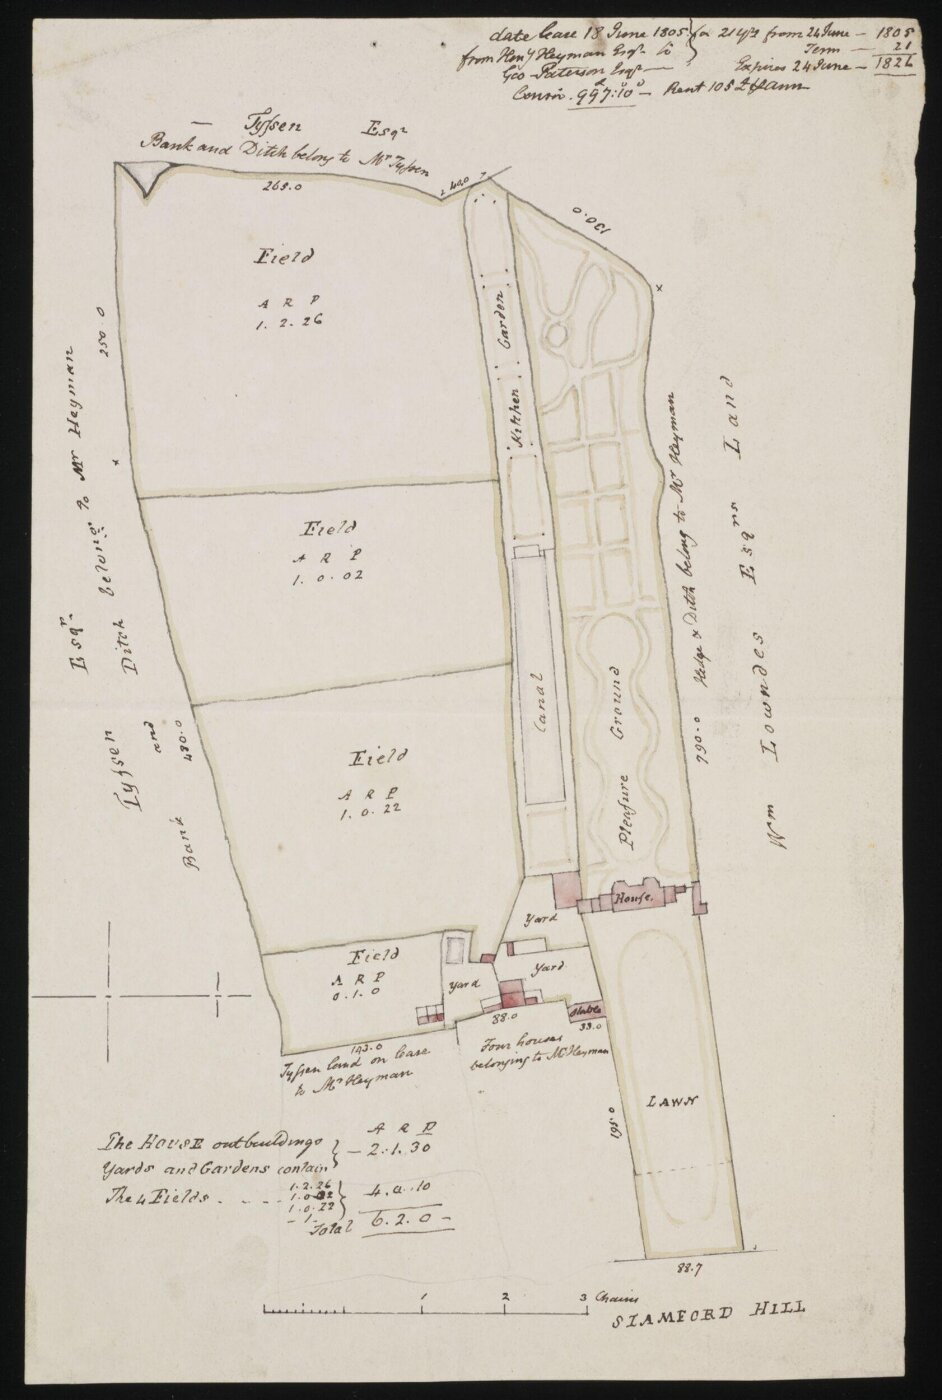 date lease 18 June 1805 for 21 yrs from 24 June — 1805
from Heny Heyman Esqr to Term — 21
Geo Paterson Esqr — Expires 24 June — 1826
Consn. 997:10 — Rent 105 £ ann
— Tyssen Esqr
Bank and Ditch belong to Mr Tyssen
265.0
40.0
130.0
Field
A R P
1. 2. 26
Kitchen Garden
250.0
Tyssen Esqr.
Bank and Ditch belong to Mr Heyman
480.0
Field
A R P
1. 0. 02
Canal
Pleasure Ground
790.0 Hedge & Ditch belong to Mr Heyman
Wm Lowndes Esqrs Land
Field
A R P
1. 0. 22
House.
Yard
Field
A R P
0. 1. 0
Yard
Yard
Stable
88.0
33.0
143.0
Tyssen land on lease
to Mr Heyman
Four houses
belonging to Mr Heyman
195.0
LAWN
A R P
The HOUSE outbuildings } — 2. 1. 30
Yards and Gardens contain
The 4 Fields - - - 1. 2. 26
1. 0. 02
1. 0. 22
- 1. -
} 4. 0. 10
Total 6. 2. 0 -
88.7
1 2 3 Chains
STAMFORD HILL